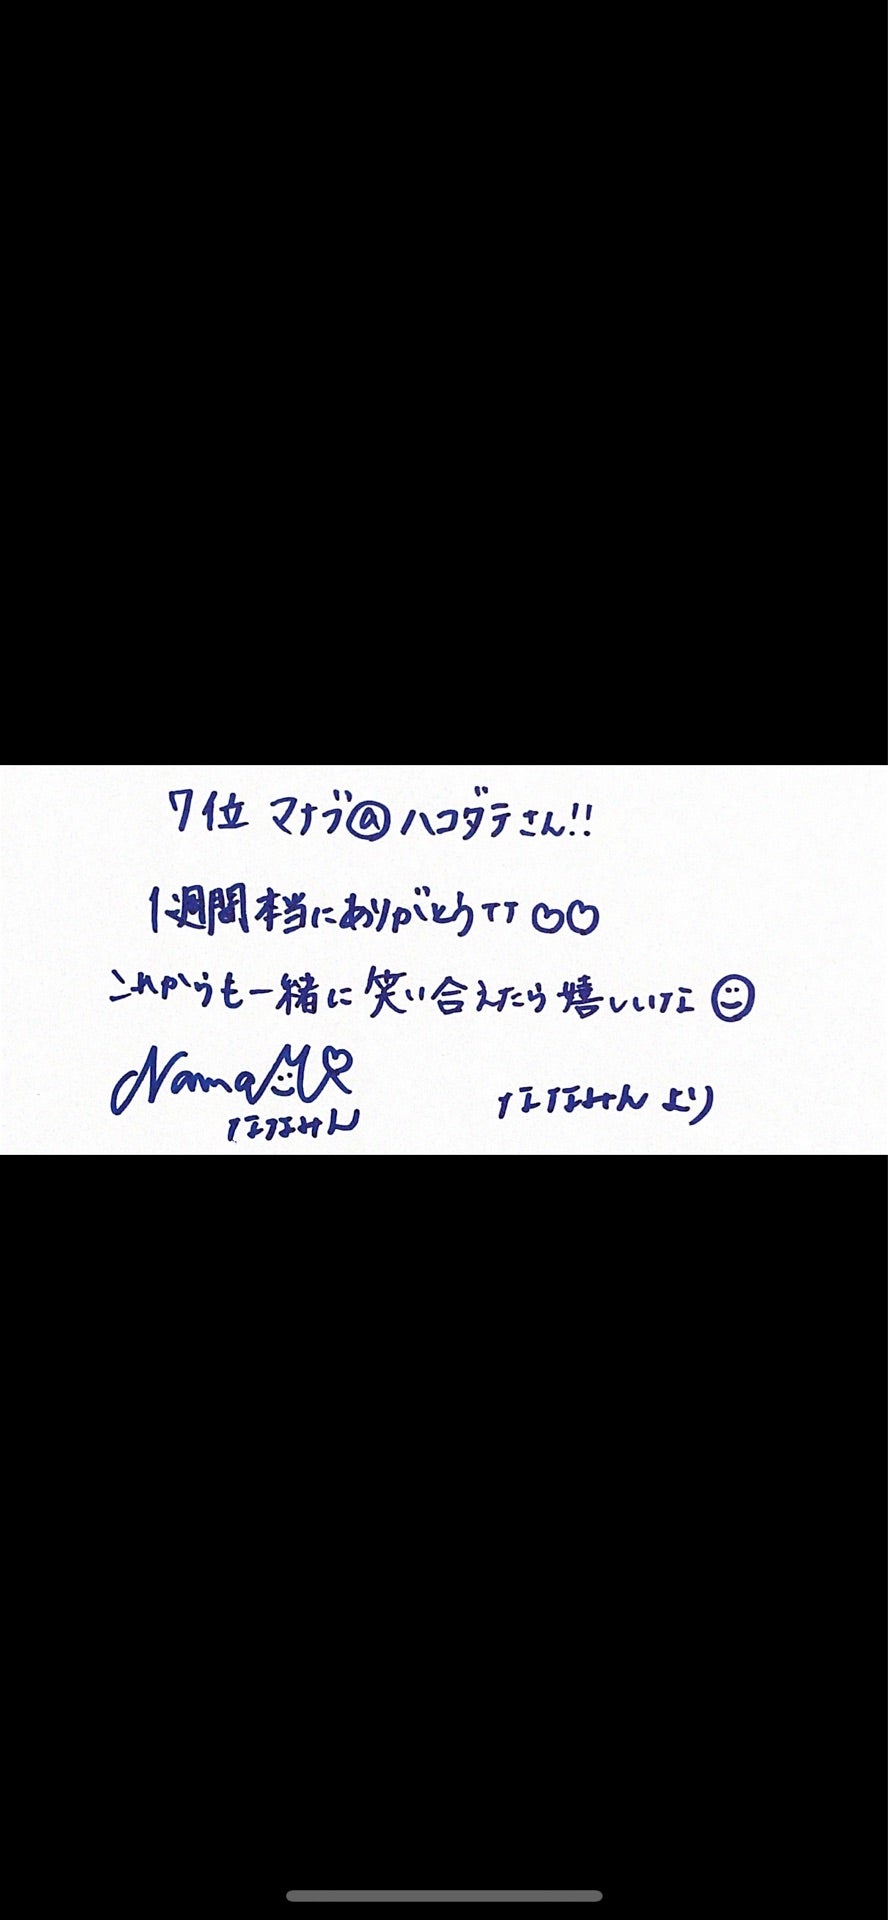 7位 マナブ@ハコダテさん!!
1週間本当にありがとうTT♡♡
これからも一緒に笑い合えたら嬉しいな☺
ななみん
ななみんより